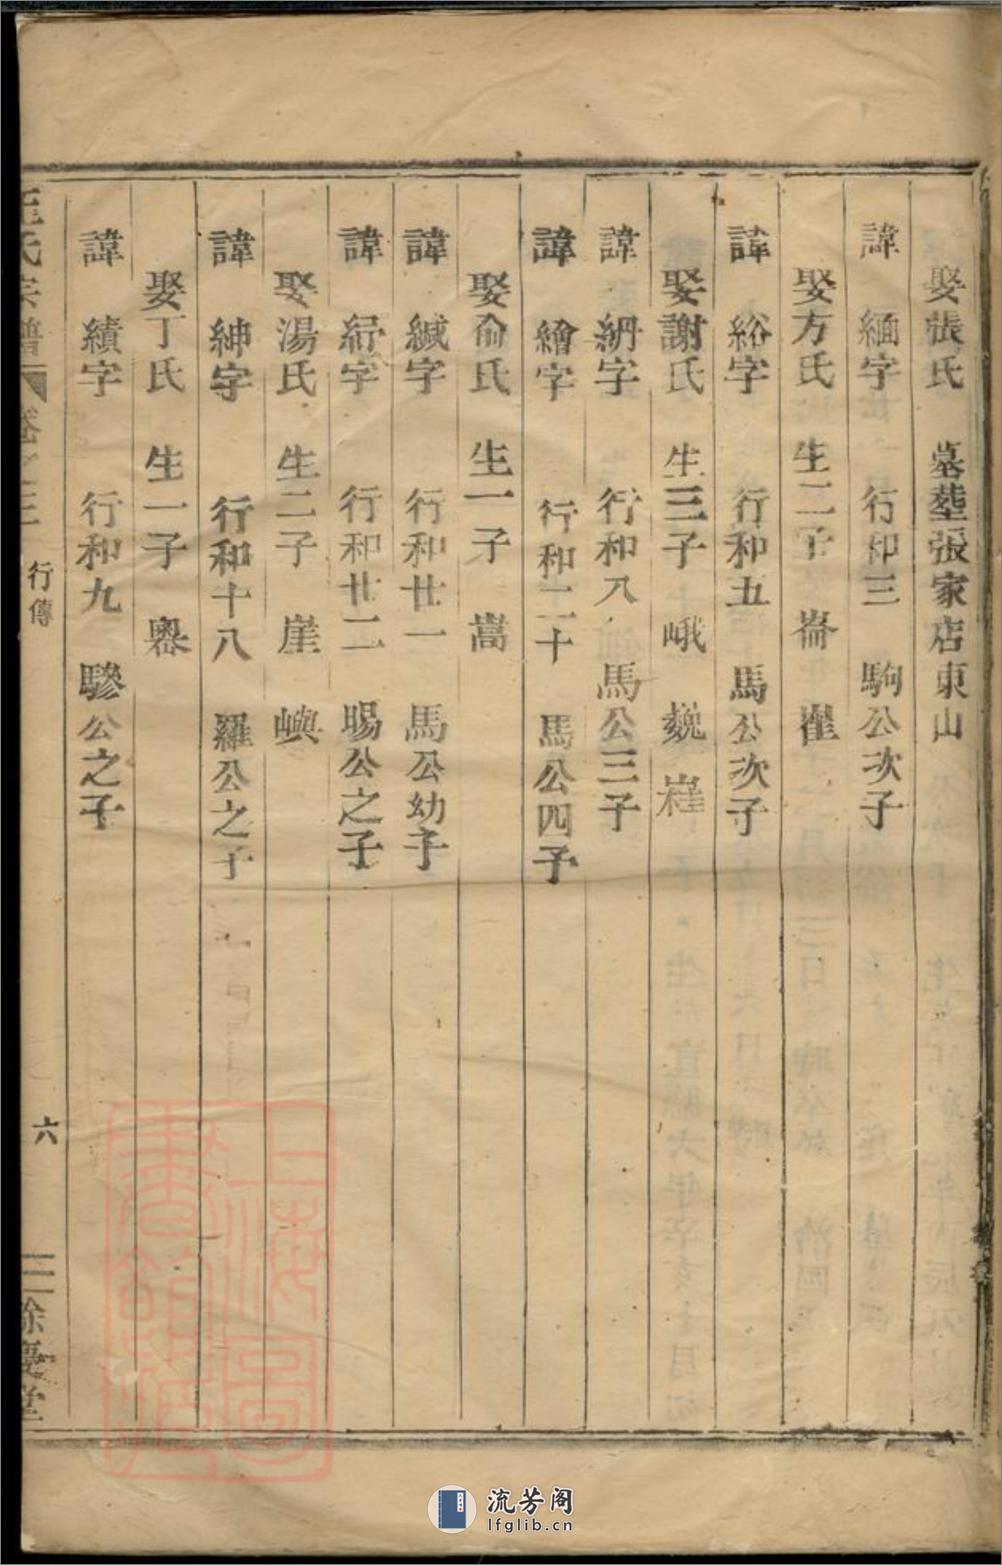 娶張氏 墓塟張家店東山
諱緬字 行和三 駒公次子
娶方氏 生二子 崙 崔
諱綌字 行和五 馬公次子
娶謝氏 生三子 峨 巍 嶵
諱網字 行和八 馬公三子
諱繪字 行和二十 馬公四子
娶俞氏 生一子 嵩
諱緘字 行和廿一 馬公幼子
諱紟字 行和廿二 賜公之子
娶湯氏 生二子 崖 嶼
諱紳字 行和十八 羅公之子
娶丁氏 生一子 嶴
諱績字 行和九 驂公之子
氏宗譜 卷之三 行傳 六 三餘慶堂
上海圖書館藏
流芳阁
lfglib.cn